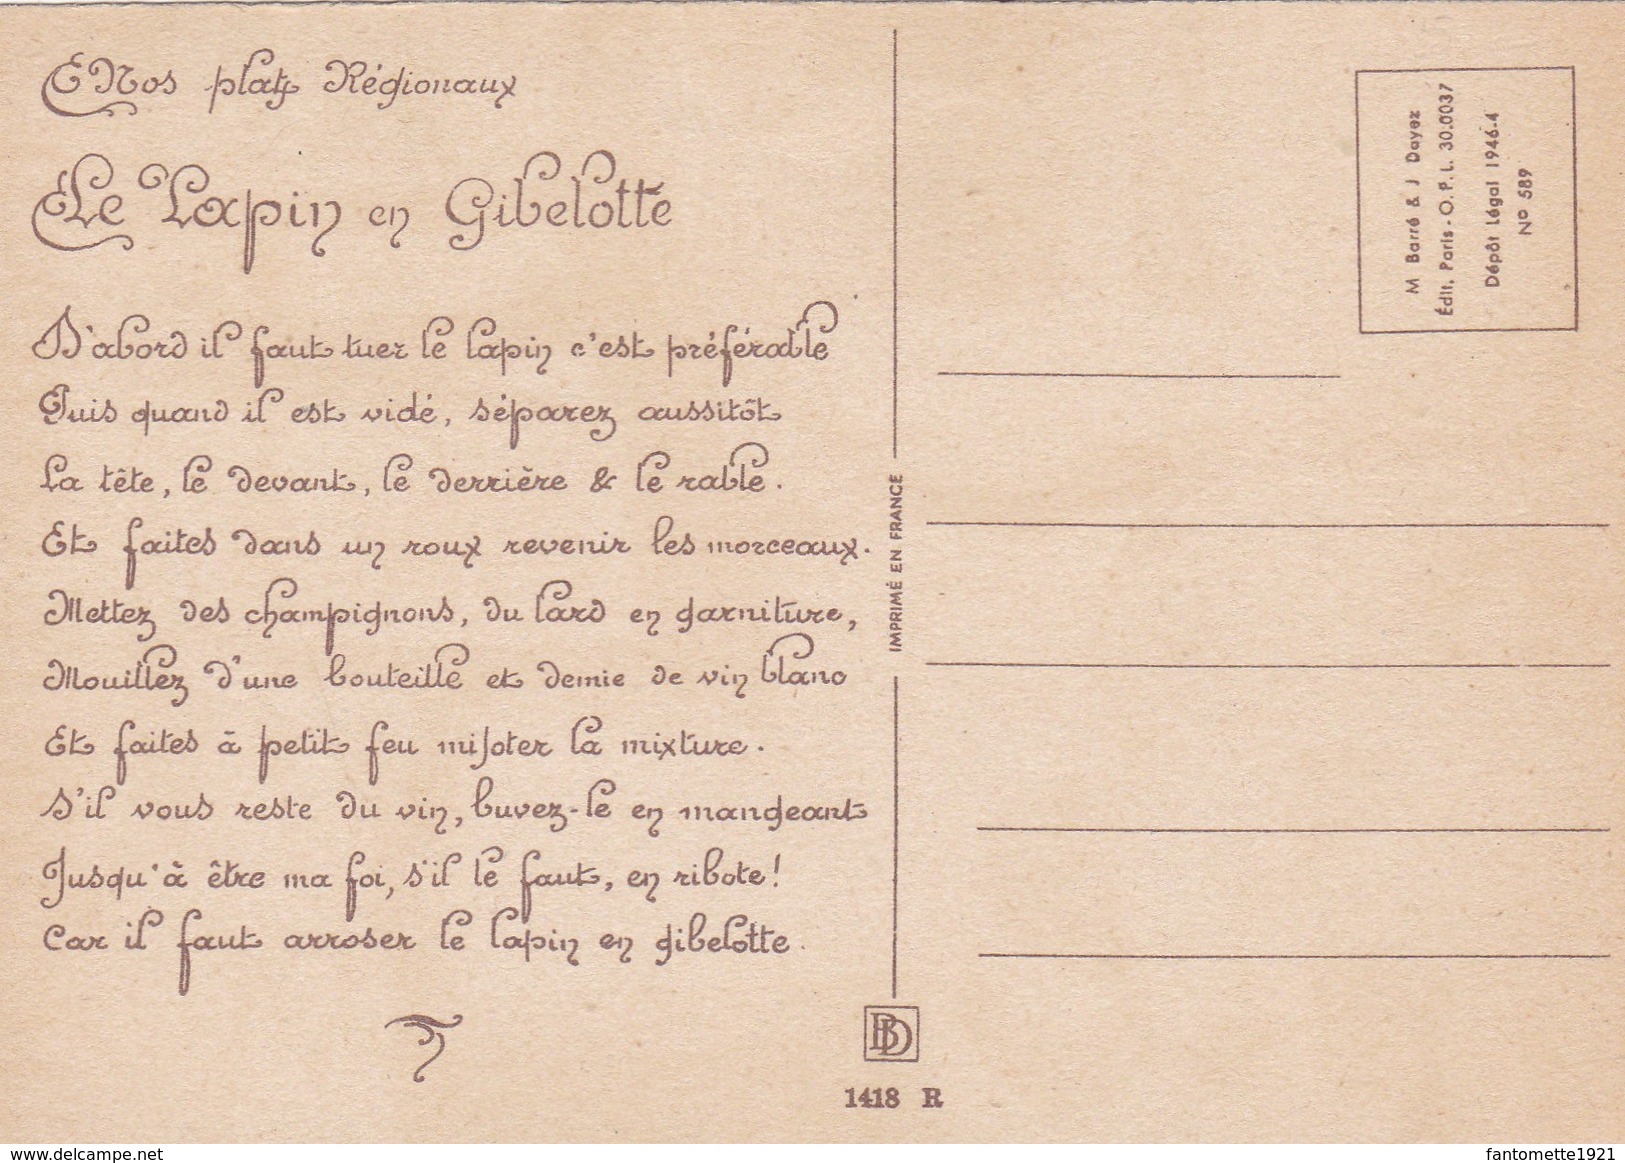 Nos plats Régionaux
Le Lapin en Gibelotte
D'abord il faut tuer le lapin c'est préférable
Puis quand il est vidé, séparez aussitôt
La tête, le devant, le derrière & le rable.
Et faites dans un roux revenir les morceaux.
Mettez des champignons, du lard en garniture,
Mouillez d'une bouteille et demie de vin blanc
Et faites à petit feu mijoter la mixture.
S'il vous reste du vin, buvez-le en mangeant
Jusqu'à être ma foi, s'il le faut, en ribote!
Car il faut arroser le lapin en gibelotte.
IMPRIMÉ EN FRANCE
BD
1418 R
M Barré & J Dayez
Édit. Paris - O.P.L. 30.0037
Dépôt Légal 1946-4
Nº 589
www.delcampe.net
fantomette1921